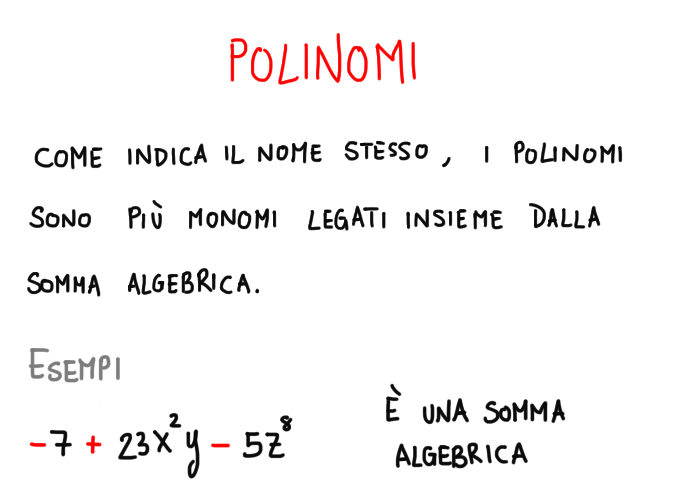 POLINOMI
COME INDICA IL NOME STESSO, I POLINOMI
SONO PIÙ MONOMI LEGATI INSIEME DALLA
SOMMA ALGEBRICA.
ESEMPI
-7 + 23x²y - 5z⁸
È UNA SOMMA
ALGEBRICA